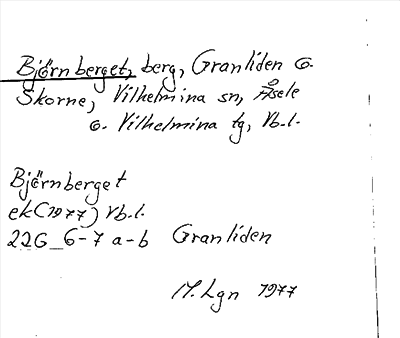 Björnberget, berg, Granliden o.
Skorne, Vilhelmina sn, Åsele
o. Vilhelmina tg, Vb.l.
Björnberget
ek(1977) Vb.l.
22G_6-7 a-b Granliden
M. Lgn 1977